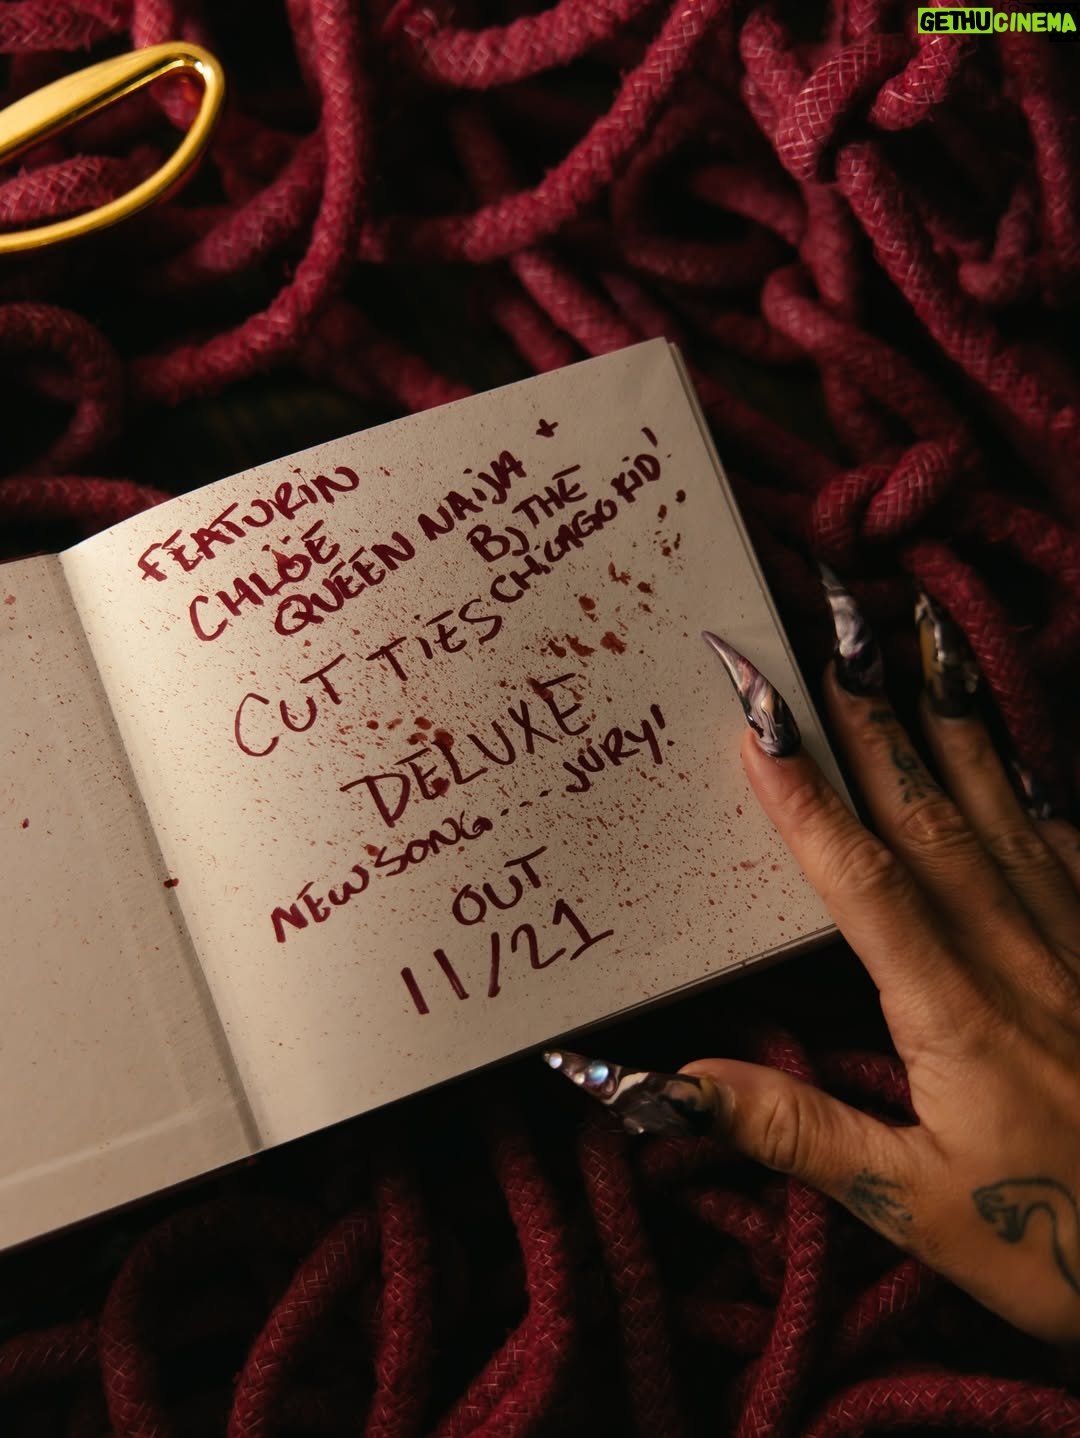 GETHUCINEMA
FEATURIN
CHLÖE
QUEEN NAIJA +
BJ THE
CHICAGO KID!
CUT TIES
DELUXE
NEW SONG... JURY!
OUT
11/21